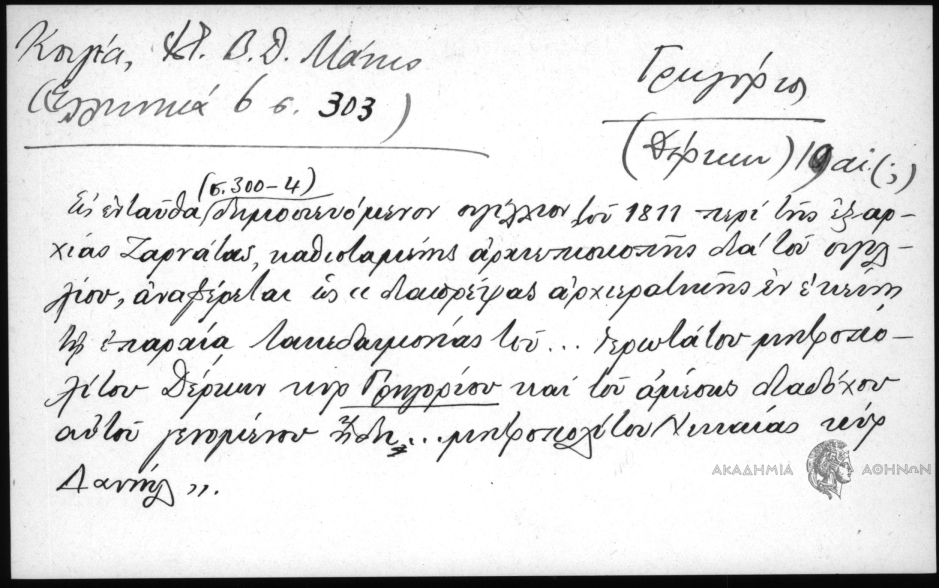 Κουγέα, Β. Θ. Μάνης
(Ελληνικά 6 σ. 303)
Γρηγόριος
(Δέρκων) 19 αἰ. (;)
(σ. 300-4)
Εἰς ἐνταῦθα δημοσιευόμενον σιγίλλιον τοῦ 1811 περὶ τῆς ἐξαρ-
χίας Ζαρνάτας, καθισταμένης ἀρχιεπισκοπῆς διὰ τοῦ σιγιλ-
λίου, ἀναφέρεται ὡς «διαπρέψας ἀρχιερατικῶς ἐν ἐκείνῃ
τῇ ἐπαρχίᾳ Λακεδαιμονίας τοῦ ... ἱερωτάτου μητροπο-
λίτου Δέρκων κὺρ Γρηγορίου καὶ τοῦ ἀμέσως διαδόχου
αὐτοῦ γενομένου ἤδη ... μητροπολίτου Νικαίας κὺρ
Δανιήλ».
ΑΚΑΔΗΜΙΑ ΑΘΗΝΩΝ